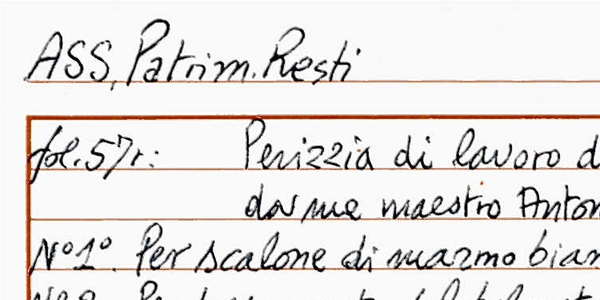 ASS, Patrim. Resti
fol. 57r: Perizzia di lavoro d
da me maestro Anton
N°1°. Per scalone di marmo bian